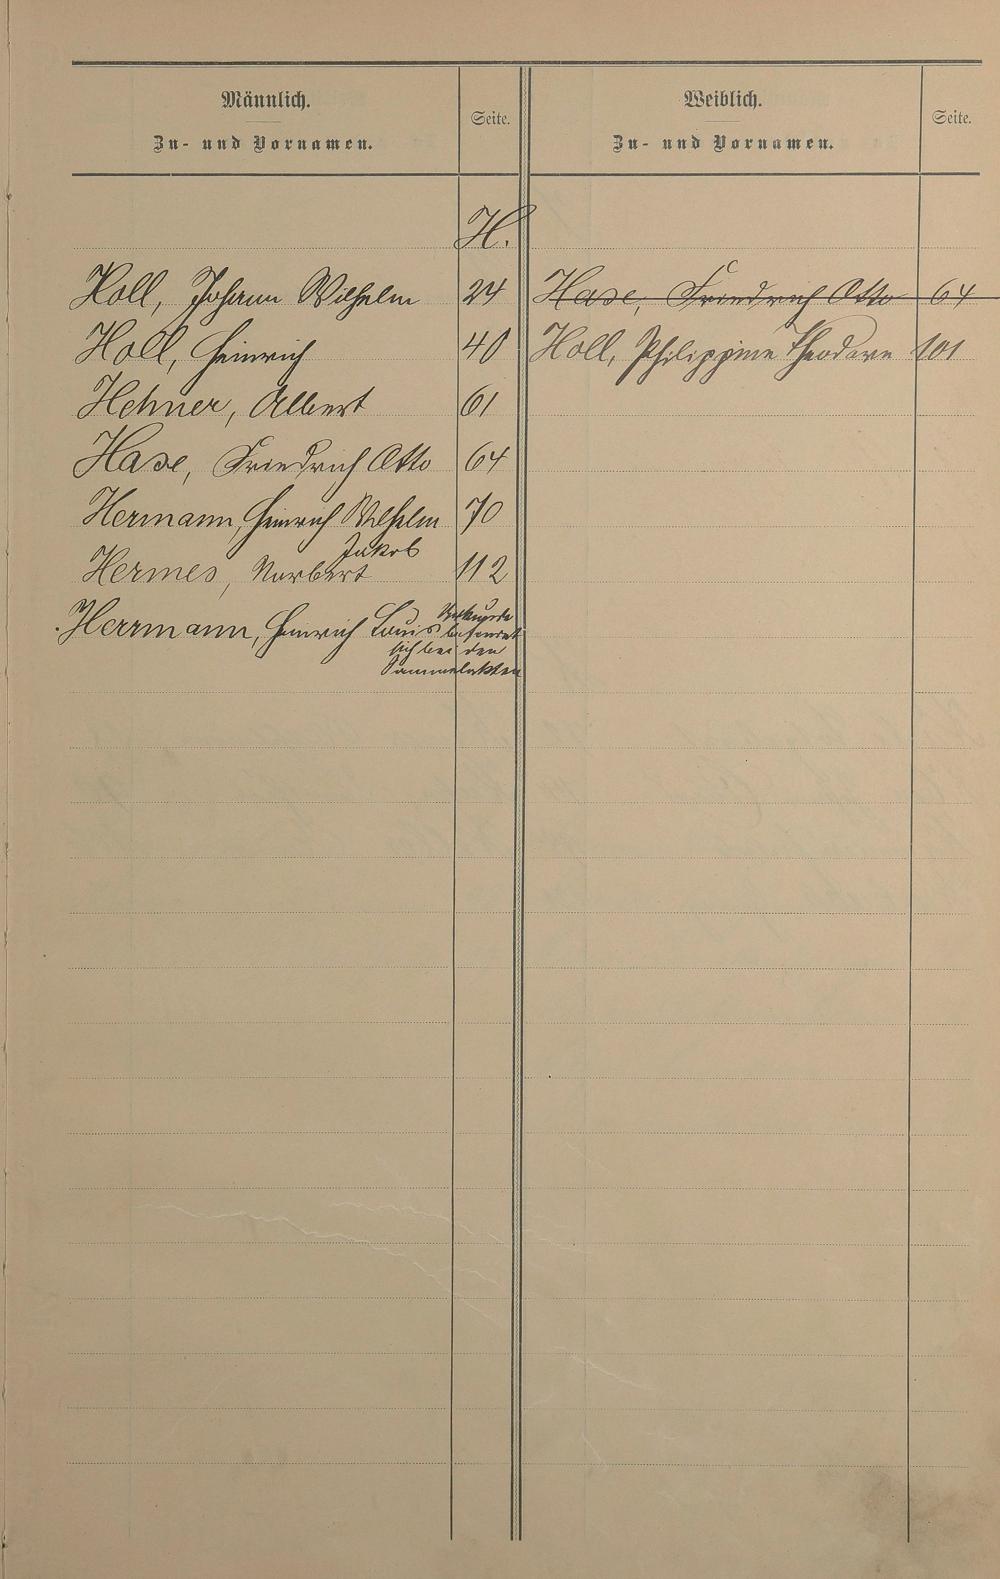 Männlich.
Zu- und Vornamen.
Seite.
Weiblich.
Zu- und Vornamen.
Seite.
H.
Holl, Johann Wilhelm 24
Holl, Heinrich 40
Hehner, Albert 61
Hase, Friedrich Otto 64
Hermann, Heinrich Wilhelm 70
Jakob
Hermes, Norbert 112
Herrmann, Heinrich Louis
befindet
sich bei den
Sammelakten
Hase, Friedrich Otto 64
Holl, Philippine Theodore 101